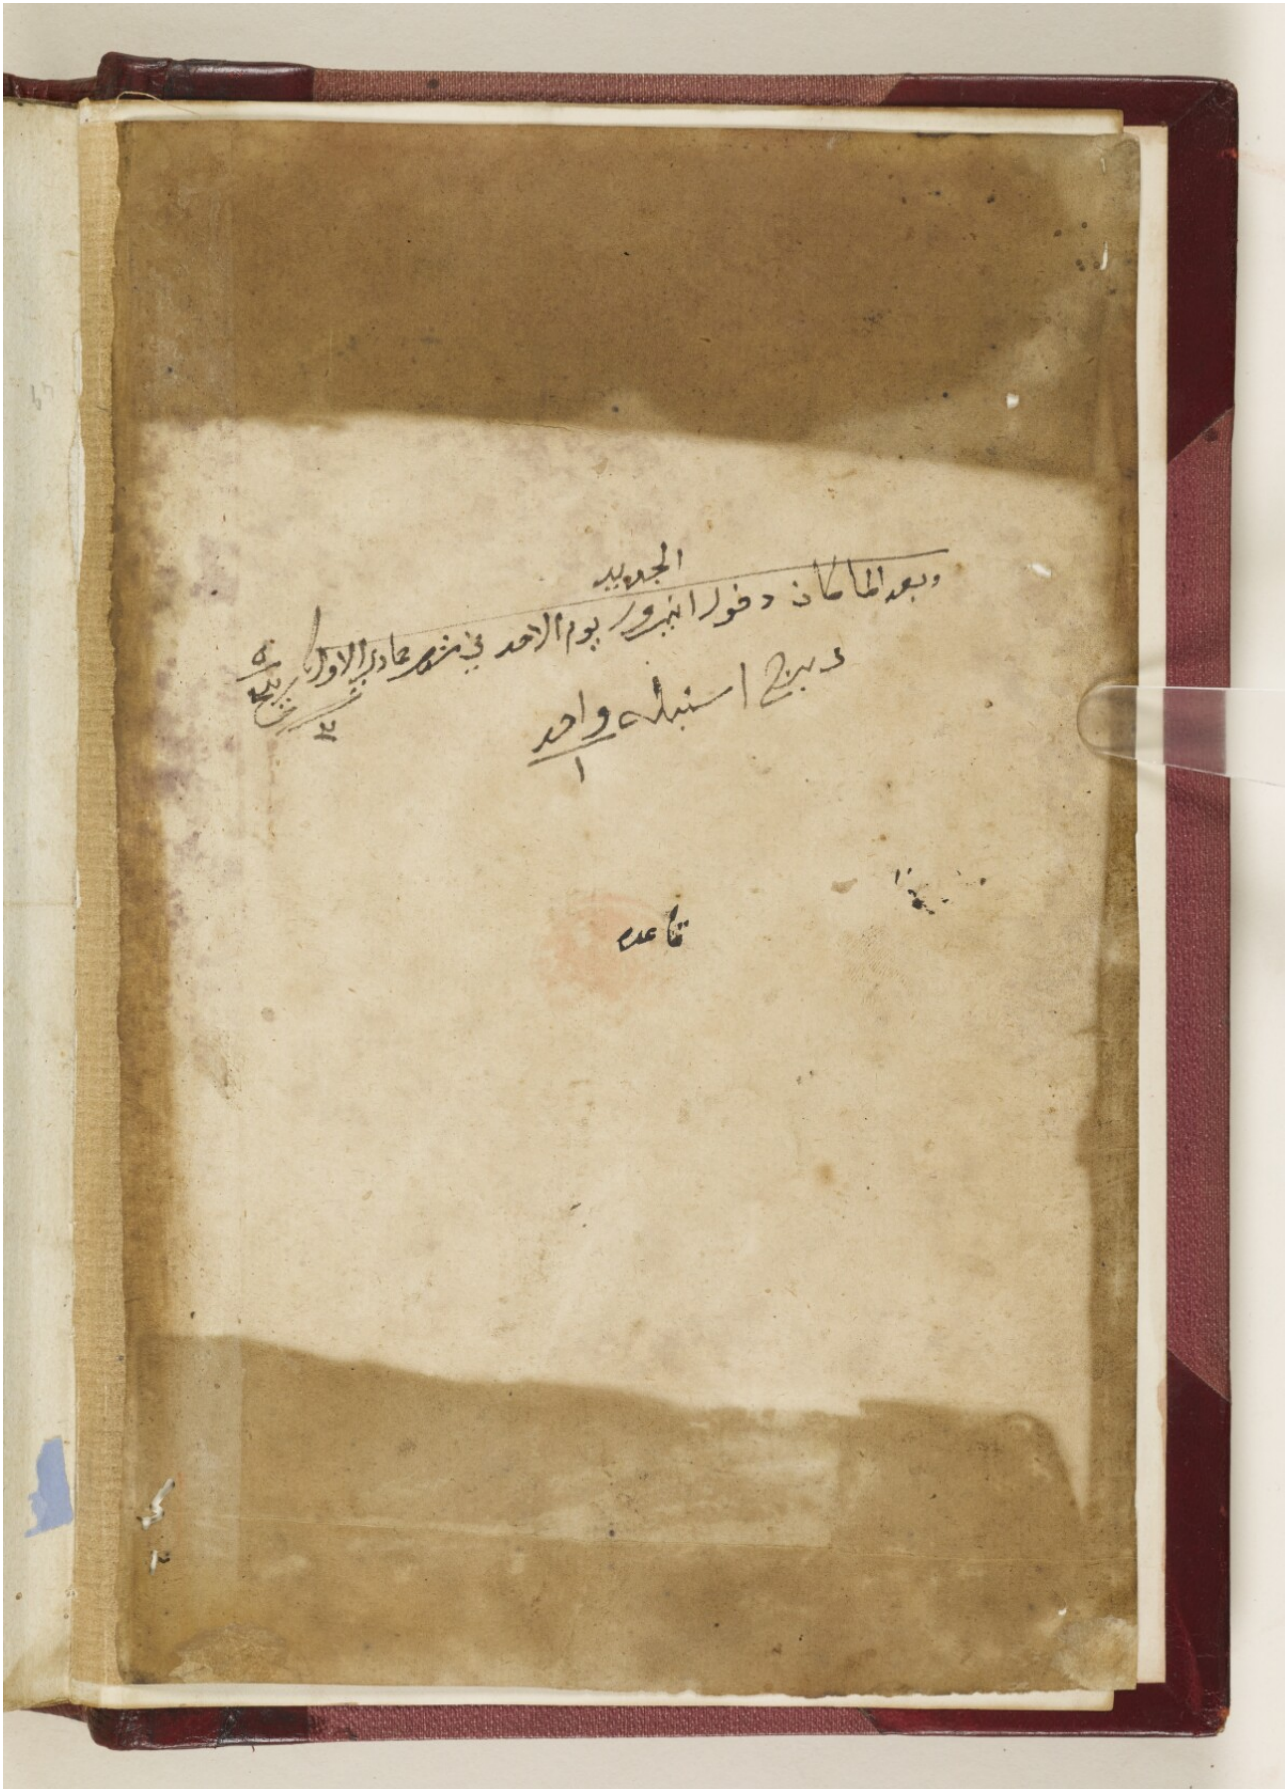 الجديد
وبعد لما كان دخول انيروز يوم الاحد في شهر جماد الاول
وبرج اسنبله واحد
١
قاعده